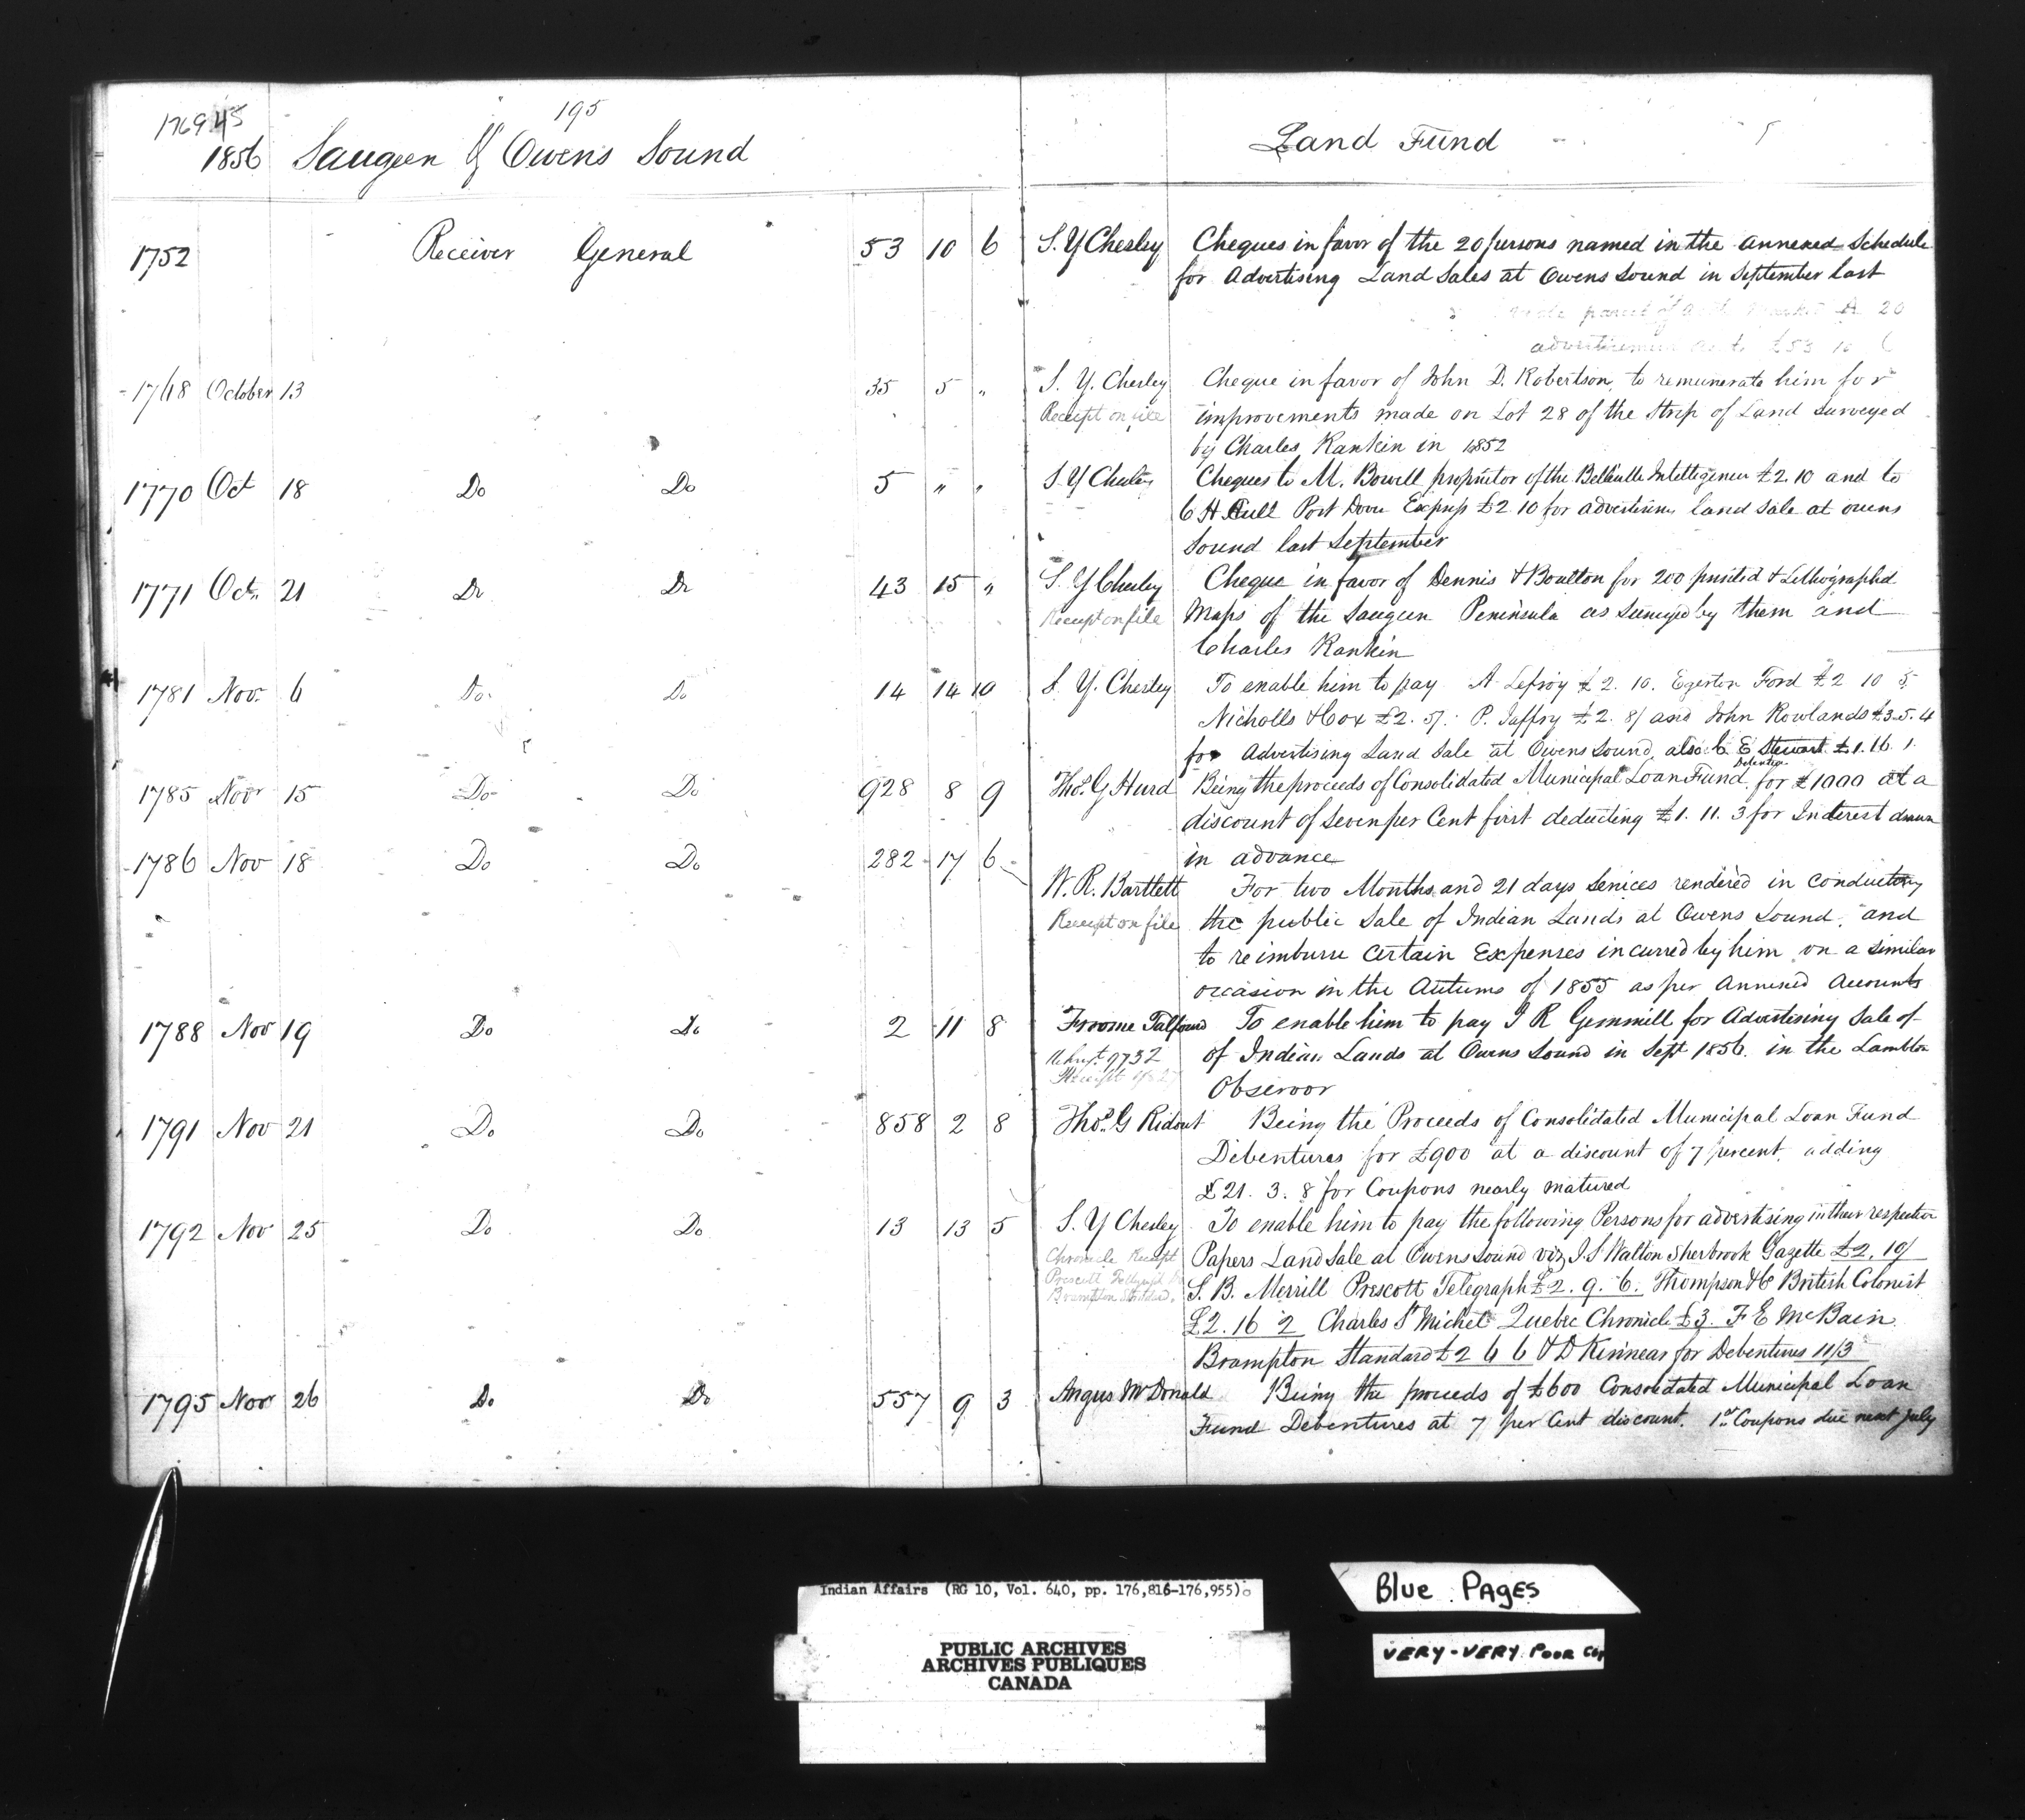 195
1769 45
1856 Saugeen & Owens Sound Land Fund
1752 Receiver General 53 10 6 S. Y Chesley Cheques in favor of the 20 persons named in the annexed Schedule
for Advertising Land Sales at Owens Sound in September last
parcel of 20
advertisement £53 10 6
1768 October 13 35 5 " S. Y. Chesley Cheque in favor of John D. Robertson, to remunerate him for
Receipt on file improvements made on Lot 28 of the Strip of Land surveyed
by Charles Rankin in 1852
1770 Oct 18 Do Do 5 " " S. Y Chesley Cheques to M. Bowell proprietor of the Belleville Intelligencer £2.10 and to
Port Dover £2 10 for advertising land sale at owens
Sound last September
1771 Oct. 21 Do Do 43 15 " S. Y Chesley Cheque in favor of Dennis & Boulton for 200 printed & Lithographd
Receipt on file Maps of the Saugeen Peninsula as surveyed by them and
Charles Rankin
1781 Nov. 6 Do. Do 14 14 10 S. Y. Chesley To enable him to pay A Lefroy £2. 10. Egerton Ford £2 10 5
Nicholls & Cox £2. 5/. P. Jaffry £2. 8/ and John Rowlands £3.5.4
for Advertising Land Sale at Owens Sound, also C. E Stewart £1.16.1.
1785 Novr 15 Do Do 928 8 9 Thos. G Hurd Being the proceeds of Consolidated Municipal Loan Fund Debentures for £1000 at a
discount of Seven per Cent first deducting £1. 11. 3 for Interest drawn
in advance
1786 Nov 18 Do Do 282 17 6
W. R. Bartlett For two Months and 21 days Services rendered in conducting
Receipt on file the public Sale of Indian Lands at Owens Sound, and
to reimburse certain Expenses incurred by him on a similar
occasion in the Autumn of 1855 as per Annexed Accounts
1788 Nov 19 Do Do 2 11 8 Froome Talfourd To enable him to pay J R Gemmill for Advertising Sale of
9732 of Indian Lands at Owens Sound in Sept 1856. in the Lambton
Receipt Observor
1791 Nov 21 Do Do 858 2 8 Thos. G Ridout Being the Proceeds of Consolidated Municipal Loan Fund
Debentures for £900 at a discount of 7 percent, adding
£21. 3. 8 for Coupons nearly matured
1792 Nov 25 Do Do 13 13 5 S. Y Chesley To enable him to pay the following Persons for advertising in their respective
Chronicle Receipt Papers Land Sale at Owens Sound viz, J. S Walton Sherbrook Gazette £2. 10/
Prescott Telegraph Do S. B. Merrill Prescott Telegraph £2. 9. 6. Thompson & Co British Colonist
Brampton Standard. £2. 16 2 Charles St Michel Quebec Chronicle £3. F E McBain
Brampton Standard £2 6 6 & D Kinnear for Debentures 11/3
1795 Nov 26 Do Do 557 9 3 Angus McDonald Being the proceeds of £600 Consolidated Municipal Loan
Fund Debentures at 7 per Cent discount. 1st Coupons due next July
Indian Affairs (RG 10, Vol. 640, pp. 176,816-176,955)
PUBLIC ARCHIVES
ARCHIVES PUBLIQUES
CANADA
Blue PAgES
VERY-VERY POOR COP